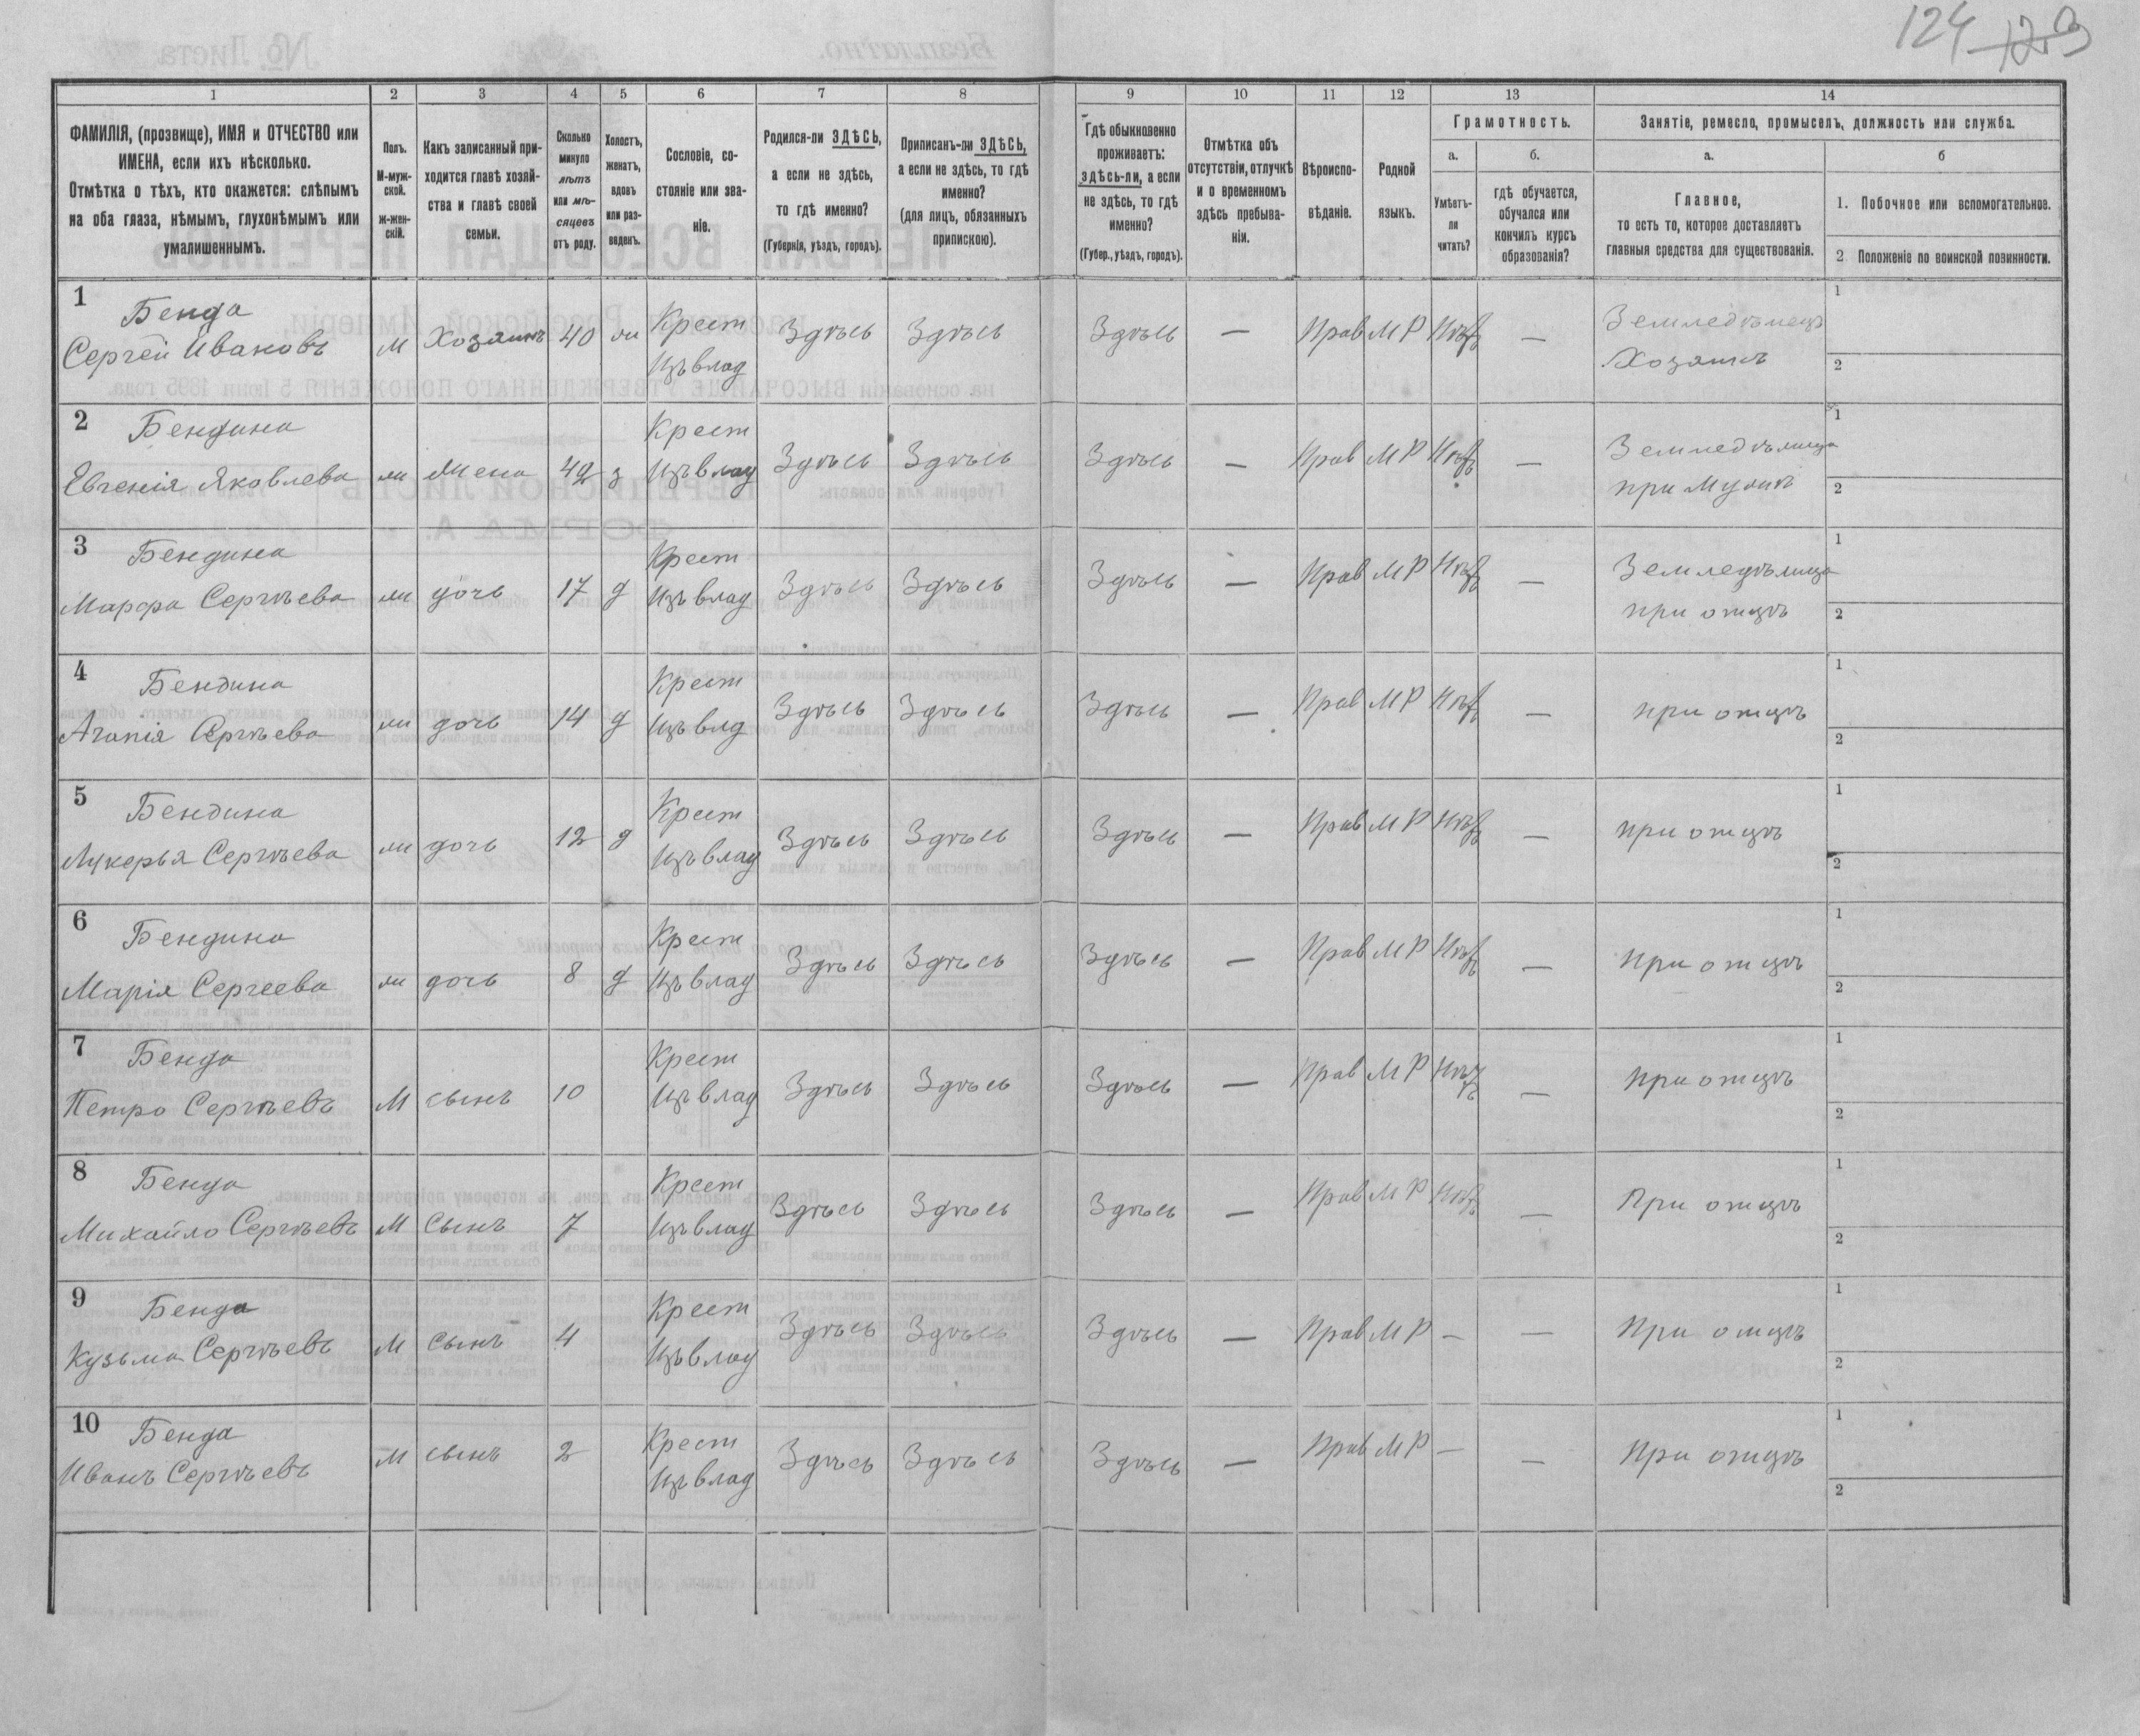 124 129
1 2 3 4 5 6 7 8 9 10 11 12 13 14
ФАМИЛІЯ, (прозвище), ИМЯ и ОТЧЕСТВО или
ИМЕНА, если ихъ нѣсколько.
Отмѣтка о тѣхъ, кто окажется: слѣпымъ
на оба глаза, нѣмымъ, глухонѣмымъ или
умалишеннымъ.
Полъ.
М-муж-
ской.
ж-жен-
скій.
Какъ записанный при-
ходится главѣ хозяй-
ства и главѣ своей
семьи.
Сколько
минуло
лѣтъ
или мѣ-
сяцевъ
отъ роду.
Холостъ,
женатъ,
вдовъ
или раз-
веденъ.
Сословіе, со-
стояніе или зва-
ніе.
Родился-ли ЗДѢСЬ,
а если не здѣсь,
то гдѣ именно?
(Губернія, уѣздъ, городъ).
Приписанъ-ли ЗДѢСЬ,
а если не здѣсь, то гдѣ
именно?
(для лицъ, обязанныхъ
припискою).
Гдѣ обыкновенно
проживаетъ:
здѣсь-ли, а если
не здѣсь, то гдѣ
именно?
(Губер., уѣздъ, городъ).
Отмѣтка объ
отсутствіи, отлучкѣ
и о временномъ
здѣсь пребыва-
ніи.
Вѣроиспо-
вѣданіе.
Родной
языкъ.
Грамотность.
а.
Умѣетъ-
ли
читать?
б.
гдѣ обучается,
обучался или
кончилъ курсъ
образованія?
Занятіе, ремесло, промыселъ, должность или служба.
а.
Главное,
то есть то, которое доставляетъ
главныя средства для существованія.
б
1. Побочное или вспомогательное.
2 Положеніе по воинской повинности.
1 Бенда Крест Землeдѣлецъ 1
Сергѣй Ивановъ М Хозяинъ 40 ж Изъ влад Здѣсь Здѣсь Здѣсь — Прав М Р Нѣтъ — Хозяинъ 2
2 Бендина Крест Земледѣлица 1
Евгенія Яковлева ж Жена 42 з Изъ влад Здѣсь Здѣсь Здѣсь — Прав М Р Нѣтъ — при Мужѣ 2
3 Бендина Крест Земледѣлица 1
Марфа Сергѣева ж дочь 17 д Изъ влад Здѣсь Здѣсь Здѣсь — Прав М Р Нѣтъ — при отцѣ 2
4 Бендина Крест 1
Агапія Сергѣева ж дочь 14 д Изъ влд Здѣсь Здѣсь Здѣсь — Прав М Р Нѣтъ — при отцѣ 2
5 Бендина Крест 1
Лукерья Сергѣева ж дочь 12 д Изъ влад Здѣсь Здѣсь Здѣсь — Прав М Р Нѣтъ — при отцѣ 2
6 Бендина Крест 1
Марія Сергеева ж дочь 8 д Изъ влад Здѣсь Здѣсь Здѣсь — Прав М Р Нѣтъ — при отцѣ 2
7 Бенда Крест 1
Петро Сергѣевъ М сынъ 10 Изъ влад Здѣсь Здѣсь Здѣсь — Прав М Р Нѣтъ — при отцѣ 2
8 Бенда Крест 1
Михайло Сергѣевъ М Сынъ 7 Изъ влад Здѣсь Здѣсь Здѣсь — Прав М Р Нѣтъ — При отцѣ 2
9 Бенда Крест 1
Кузьма Сергѣевъ М Сынъ 4 Изъ влад Здѣсь Здѣсь Здѣсь — Прав М Р — — При отцѣ 2
10 Бенда Крест 1
Иванъ Сергѣевъ М сынъ 2 Изъ влад Здѣсь Здѣсь Здѣсь — Прав М Р — — При отцѣ 2